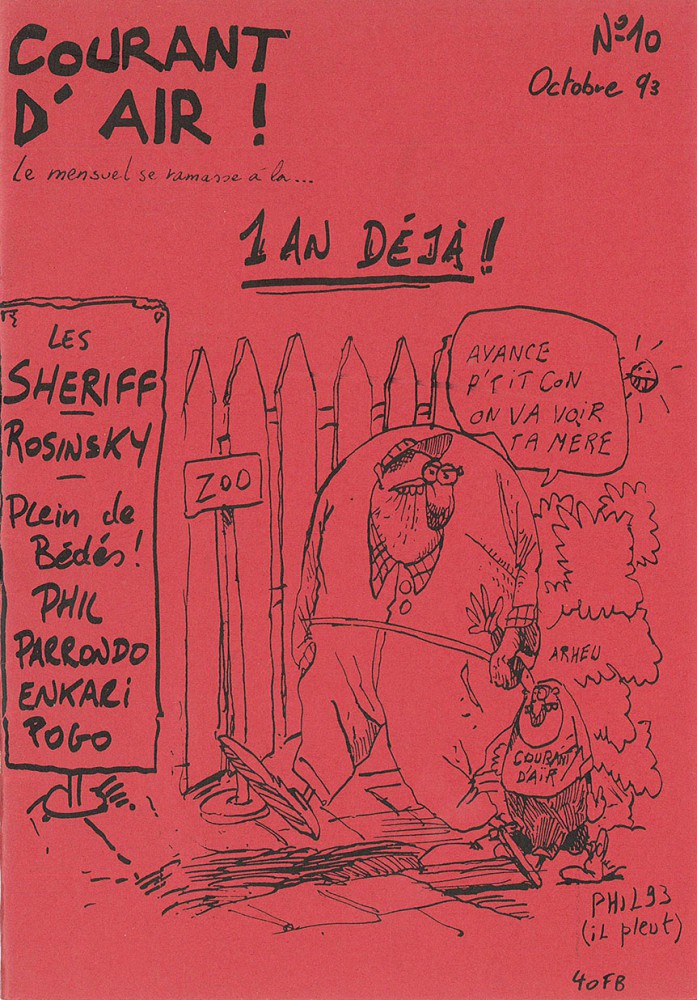 COURANT
D'AIR !
N°10
Octobre 93
Le mensuel se ramasse à la...
1 AN DÉJÀ !
LES
SHERIFF
ROSINSKY
Plein de
Bédés !
PHIL
PARRONDO
ENKARI
POGO
ZOO
AVANCE
P'TIT CON
ON VA VOIR
TA MERE
ARHEU
COURANT
D'AIR
PHIL93
(iL pleut)
40FB